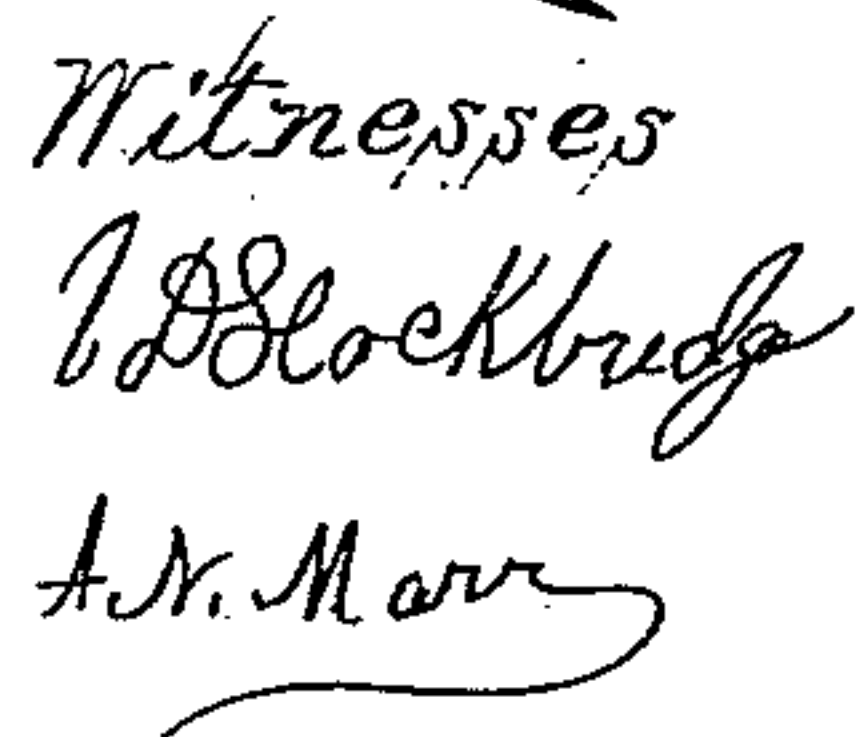 Witnesses
V D Stockbridge
A. N. Marr